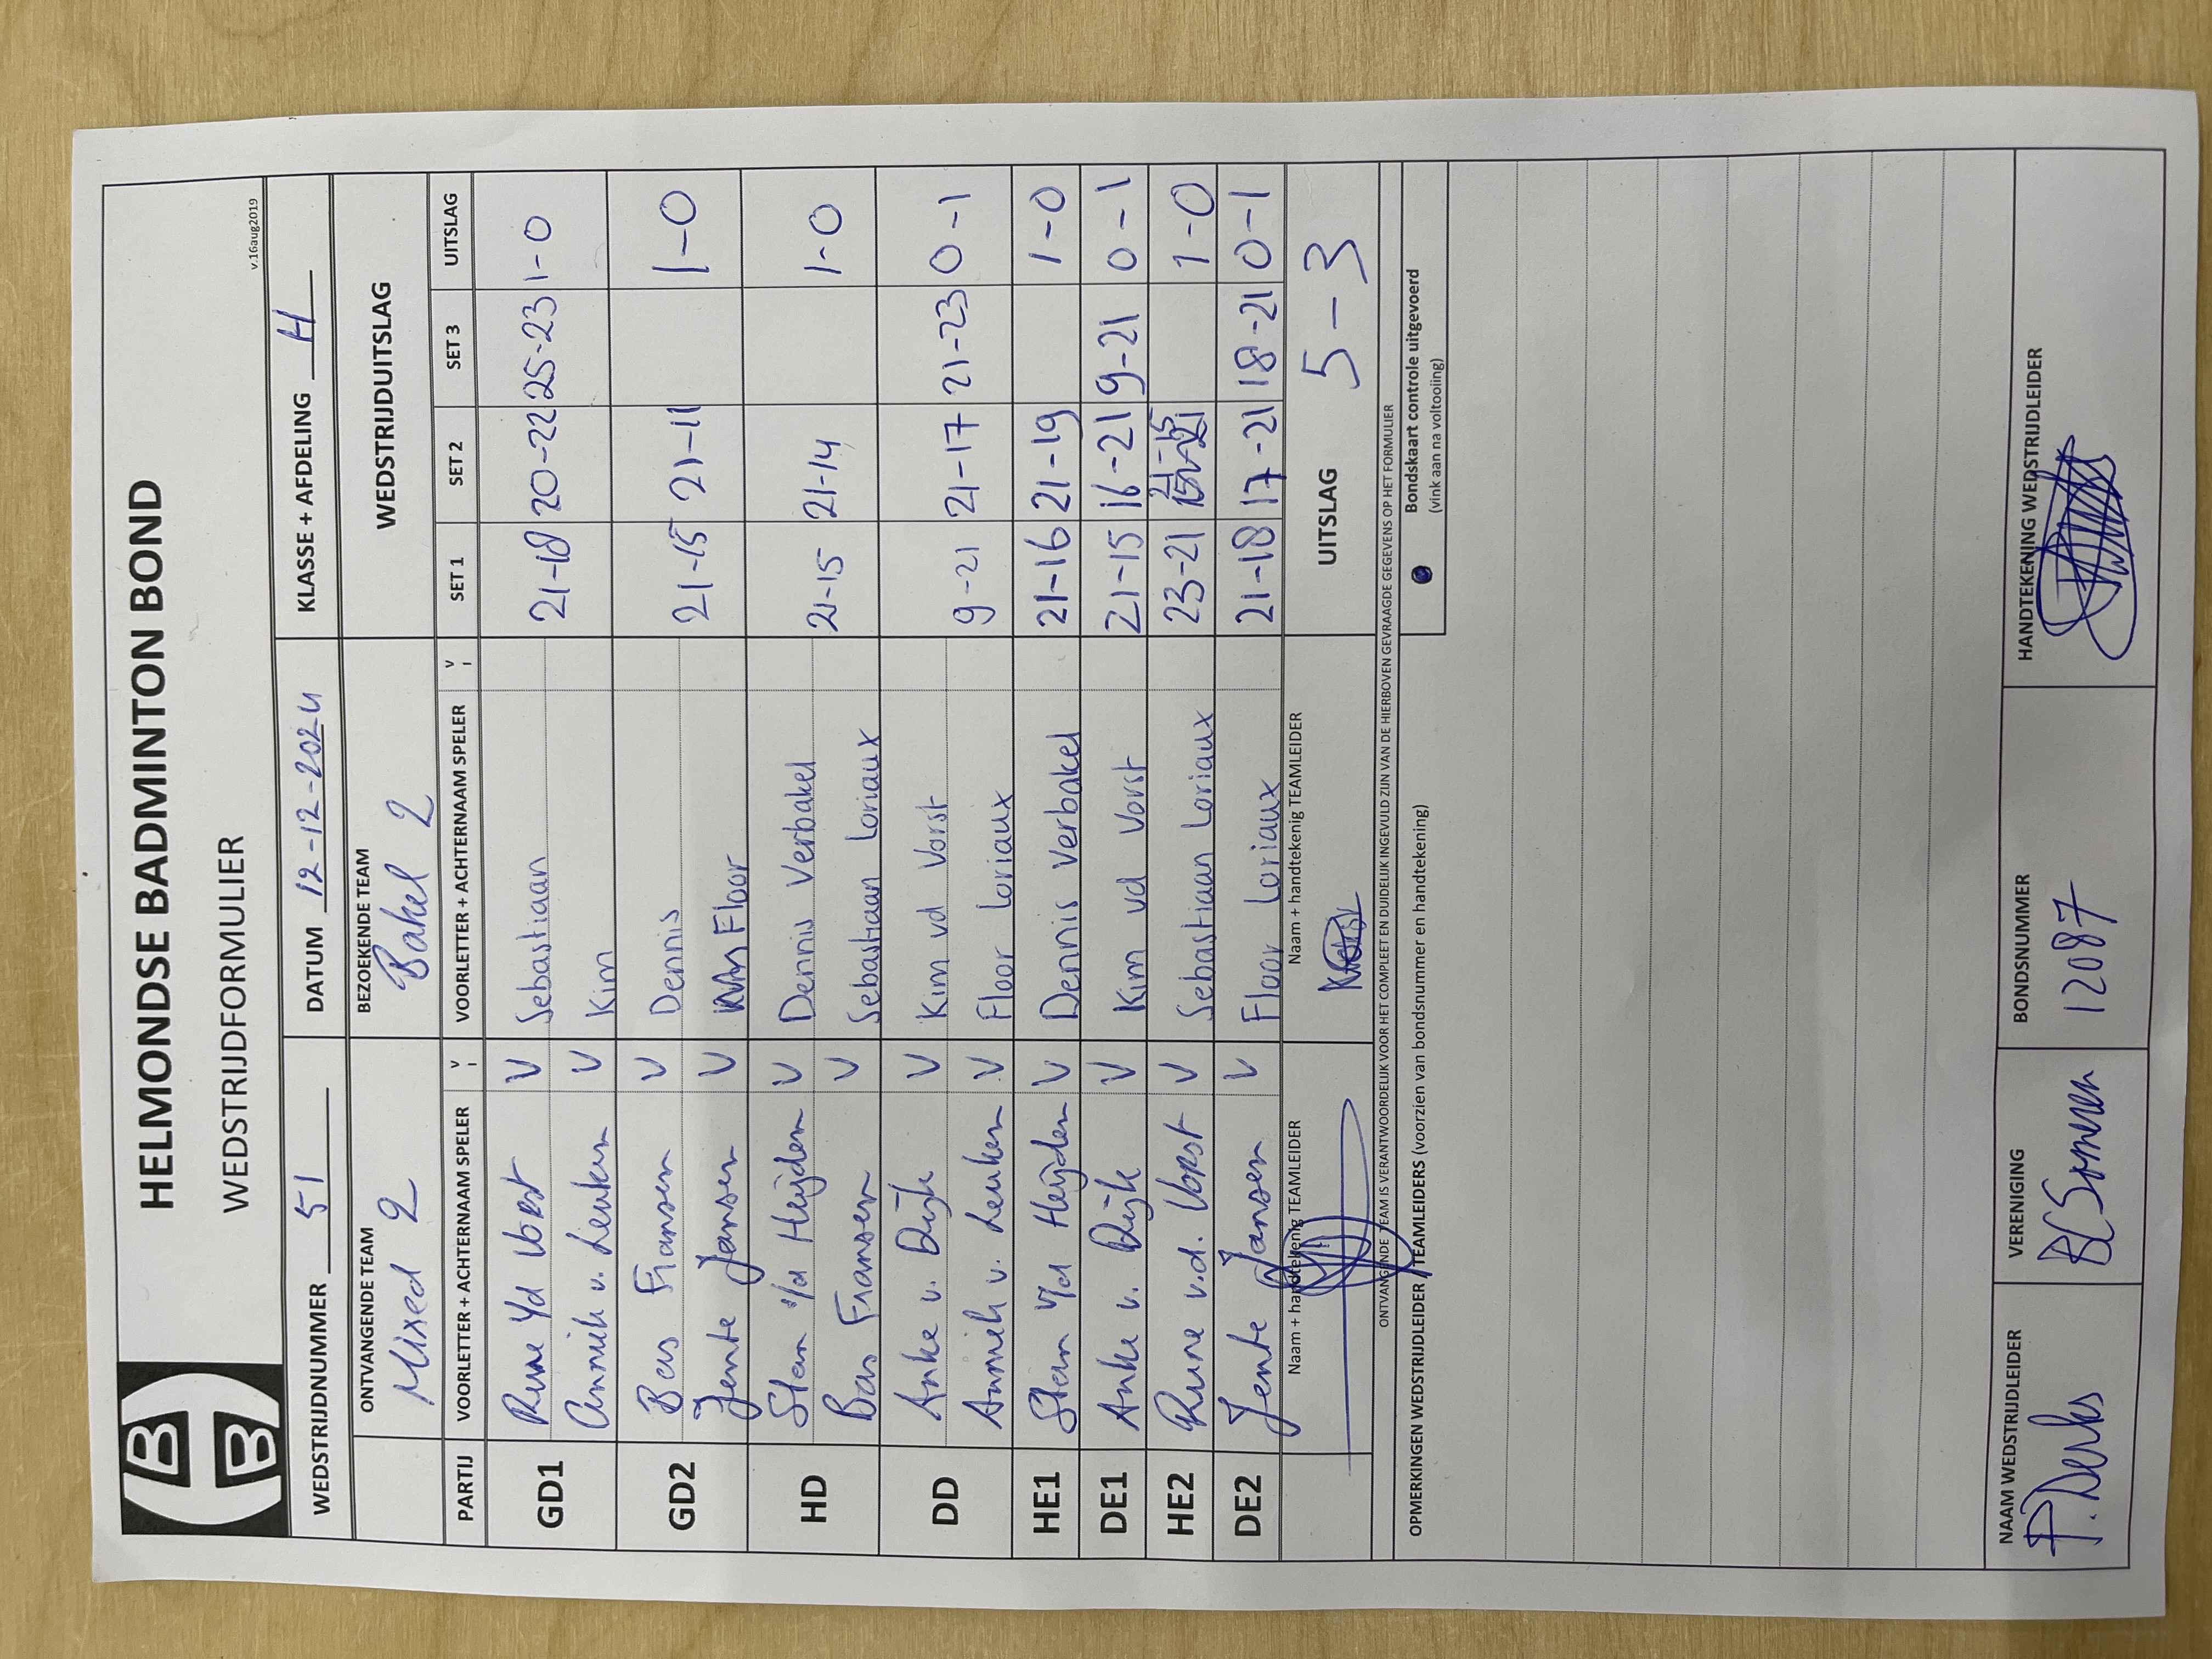 HELMONDSE BADMINTON BOND
WEDSTRIJDFORMULIER
v.16aug2019
WEDSTRIJDNUMMER 51 DATUM 12-12-2024 KLASSE + AFDELING H
ONTVANGENDE TEAM BEZOEKENDE TEAM WEDSTRIJDUITSLAG
Mixed 2 Bakel 2
PARTIJ VOORLETTER + ACHTERNAAM SPELER V I VOORLETTER + ACHTERNAAM SPELER V I SET 1 SET 2 SET 3 UITSLAG
GD1 Rune v/d Vorst V Sebastiaan 21-18 20-22 25-23 1-0
Annick v. Leuken V Kim
GD2 Bas Fransen V Dennis 21-15 21-11 1-0
Jente Jansen V Floor
HD Stan v/d Heijden V Dennis Verbakel 21-15 21-14 1-0
Bas Fransen V Sebastiaan Loriaux
DD Anke v. Dijk V Kim vd Vorst 9-21 21-17 21-23 0-1
Annick v. Leuken V Floor Loriaux
HE1 Stan v/d Heijden V Dennis Verbakel 21-16 21-19 1-0
DE1 Anke v. Dijk V Kim vd Vorst 21-15 16-21 9-21 0-1
HE2 Rune v.d. Vorst V Sebastiaan Loriaux 23-21 21-15 1-0
DE2 Jente Jansen V Floor Loriaux 21-18 17-21 18-21 0-1
Naam + handtekenig TEAMLEIDER Naam + handtekenig TEAMLEIDER UITSLAG 5-3
ONTVANGENDE TEAM IS VERANTWOORDELIJK VOOR HET COMPLEET EN DUIDELIJK INGEVULD ZIJN VAN DE HIERBOVEN GEVRAAGDE GEGEVENS OP HET FORMULIER
OPMERKINGEN WEDSTRIJDLEIDER / TEAMLEIDERS (voorzien van bondsnummer en handtekening)
Bondskaart controle uitgevoerd
(vink aan na voltooiing)
NAAM WEDSTRIJDLEIDER VERENIGING BONDSNUMMER HANDTEKENING WEDSTRIJDLEIDER
P. Derks BC Someren 12087